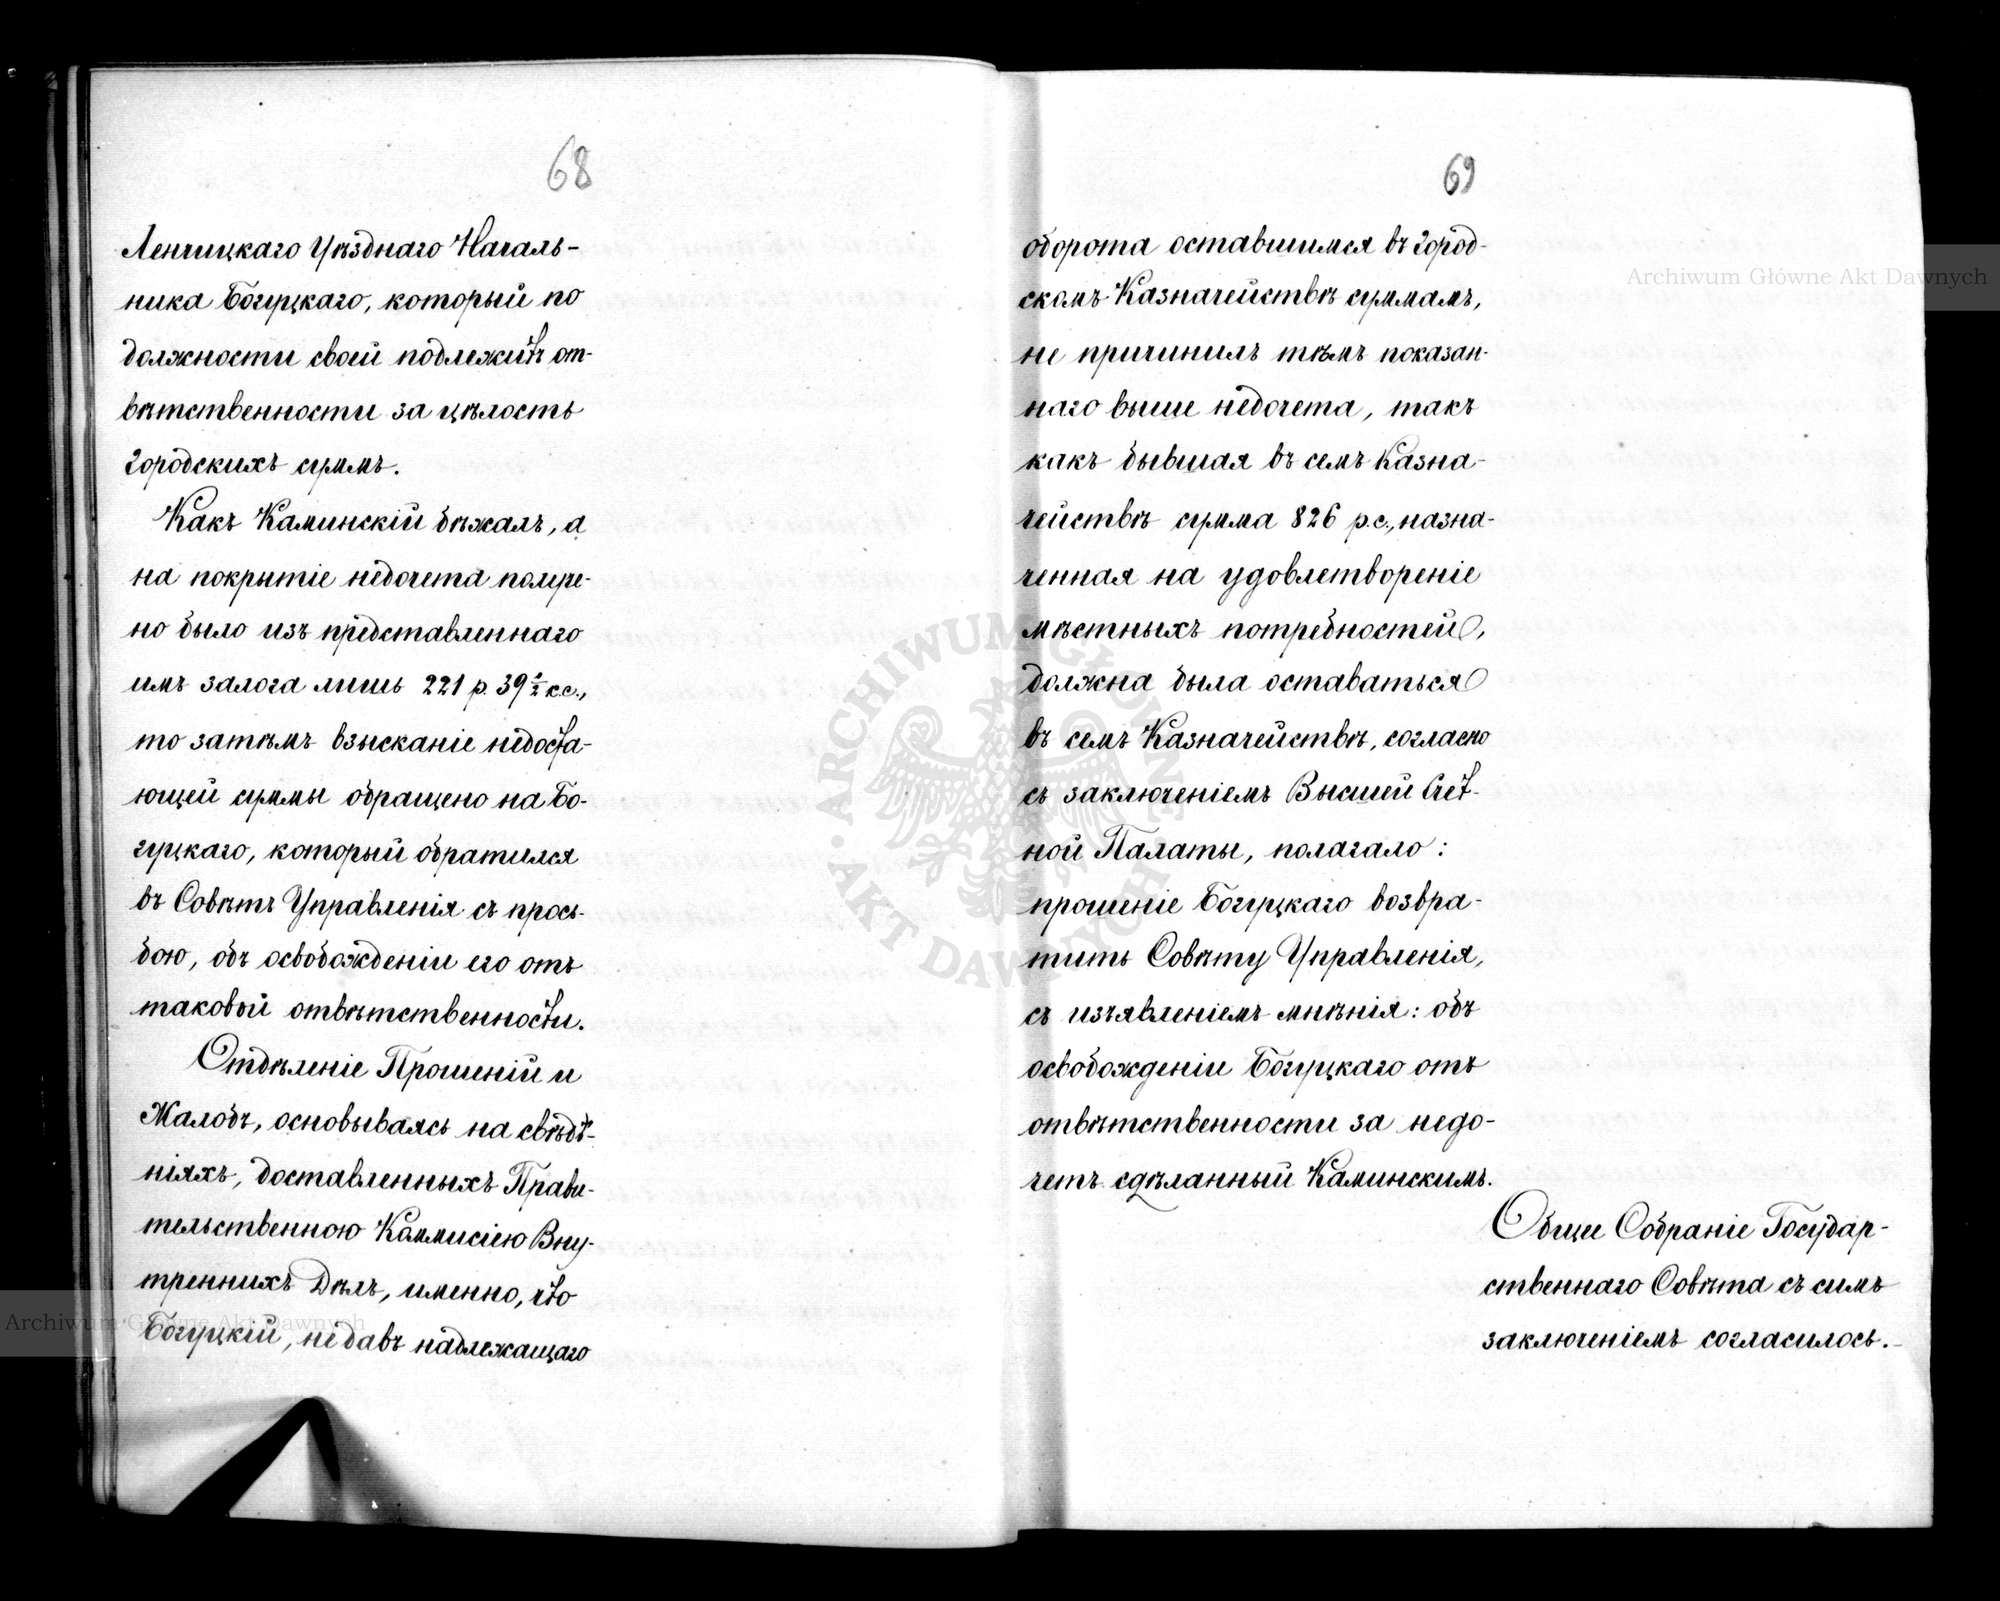 68
Ленчицкаго Уѣзднаго Началь-
ника Богуцкаго, который по
должности своей подлежитъ от-
вѣтственности за цѣлость
городскихъ суммъ.
Какъ Каминскій бѣжалъ, а
на покрытіе недочета получе-
но было изъ представленнаго
имъ залога лишь 221 р. 39 1/2 к.с.,
то затѣмъ взысканіе недоста-
ющей суммы обращено на Бо-
гуцкаго, который обратился
въ Совѣтъ Управленія съ прось-
бою, объ освобожденіи его отъ
таковой отвѣтственности.
Отдѣленіе Прошеній и
Жалобъ, основываясь на свѣдѣ-
ніяхъ, доставленныхъ Прави-
тельственною Коммисіею Вну-
треннихъ Дѣлъ, именно, что
Богуцкій, не давъ надлежащаго
69
оборота оставшимся въ город-
скомъ Казначействѣ суммамъ,
не причинилъ тѣмъ показан-
наго выше недочета, такъ
какъ бывшая въ семъ Казна-
чействѣ сумма 826 р.с., назна-
ченная на удовлетвореніе
мѣстныхъ потребностей,
должна была оставаться
въ семъ Казначействѣ, согласно
съ заключеніемъ Высшей Счет-
ной Палаты, полагало:
прошеніе Богуцкаго возвра-
тить Совѣту Управленія,
съ изъявленіемъ мнѣнія: объ
освобожденіи Богуцкаго отъ
отвѣтственности за недо-
четъ сдѣланный Каминскимъ.
Общее Собраніе Государ-
ственнаго Совѣта съ симъ
заключеніемъ согласилось.
Archiwum Główne Akt Dawnych
Archiwum Główne Akt Dawnych
ARCHIWUM GŁÓWNE
AKT DAWNYCH